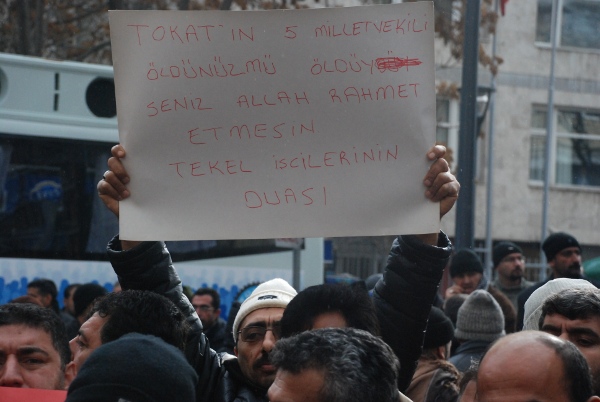 TOKAT'IN 5 MİLLETVEKİLİ
ÖLDÜNÜZMÜ ÖLDÜY
SENİZ ALLAH RAHMET
ETMESİN
TEKEL İSCİLERİNİN
DUASI